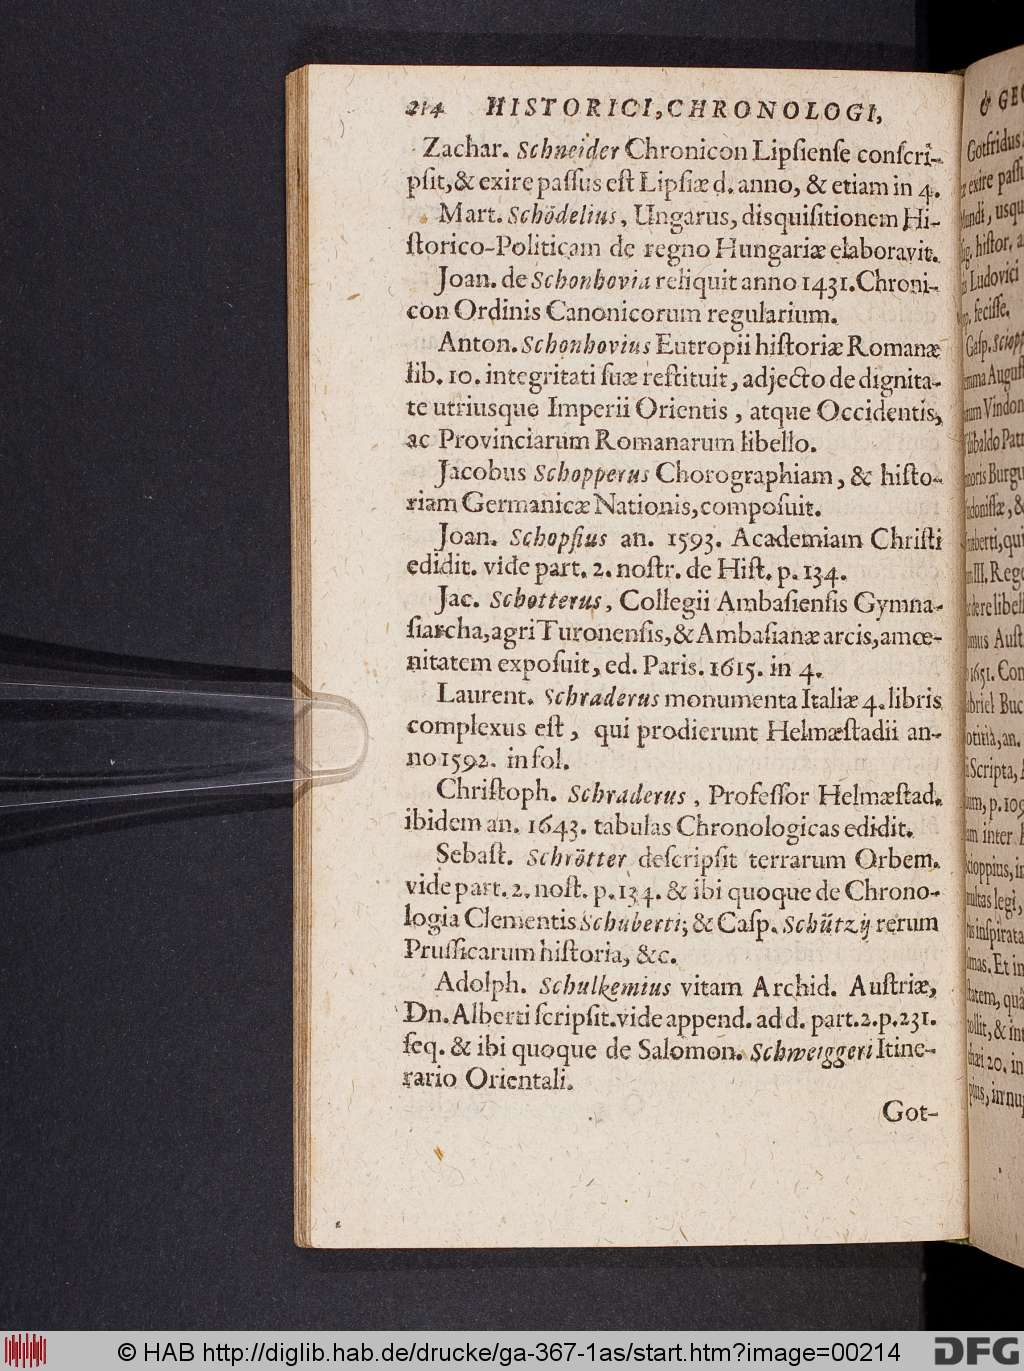 214 HISTORICI, CHRONOLOGI,
Zachar. Schneider Chronicon Lipſienſe conſcri-
pſit, & exire paſſus eſt Lipſiæ d. anno, & etiam in 4.
Mart. Schödelius, Ungarus, disquiſitionem Hi-
ſtorico-Politicam de regno Hungariæ elaboravit.
Joan. de Schonhovia reliquit anno 1431. Chroni-
con Ordinis Canonicorum regularium.
Anton. Schonhovius Eutropii hiſtoriæ Romanæ
lib. 10. integritati ſuæ reſtituit, adjecto de dignita-
te utriusque Imperii Orientis, atque Occidentis,
ac Provinciarum Romanarum libello.
Jacobus Schopperus Chorographiam, & hiſto-
riam Germanicæ Nationis, compoſuit.
Joan. Schopſius an. 1593. Academiam Chriſti
edidit. vide part. 2. noſtr. de Hiſt. p. 134.
Jac. Schotterus, Collegii Ambaſienſis Gymna-
ſiarcha, agri Turonenſis, & Ambaſianæ arcis, amœ-
nitatem expoſuit, ed. Paris. 1615. in 4.
Laurent. Schraderus monumenta Italiæ 4. libris
complexus eſt, qui prodierunt Helmæſtadii an-
no 1592. in fol.
Chriſtoph. Schraderus, Profeſſor Helmæſtad.
ibidem an. 1643. tabulas Chronologicas edidit.
Sebaſt. Schrötter deſcripſit terrarum Orbem.
vide part. 2. noſt. p. 134. & ibi quoque de Chrono-
logia Clementis Schuberti; & Caſp. Schützij rerum
Pruſſicarum hiſtoria, &c.
Adolph. Schulkemius vitam Archid. Auſtriæ,
Dn. Alberti ſcripſit. vide append. ad d. part. 2. p. 231.
ſeq. & ibi quoque de Salomon. Schweiggeri Itine-
rario Orientali.
Got-
& GEO
Gotfridus
exire paſſu
Mundi, usqu
hiſtor. a
Ludovici
feciſſe.
Gaſp. Sciopp
Auguſt
Vindon
Patr
Burgu
III. Rege
libell
Auſt
1651. Con
Buc
an.
Scripta,
p. 109
inter
cioppius, in
multas legi,
inſpirata
Et in
quâ
& int
20. in
© HAB http://diglib.hab.de/drucke/ga-367-1as/start.htm?image=00214
DFG